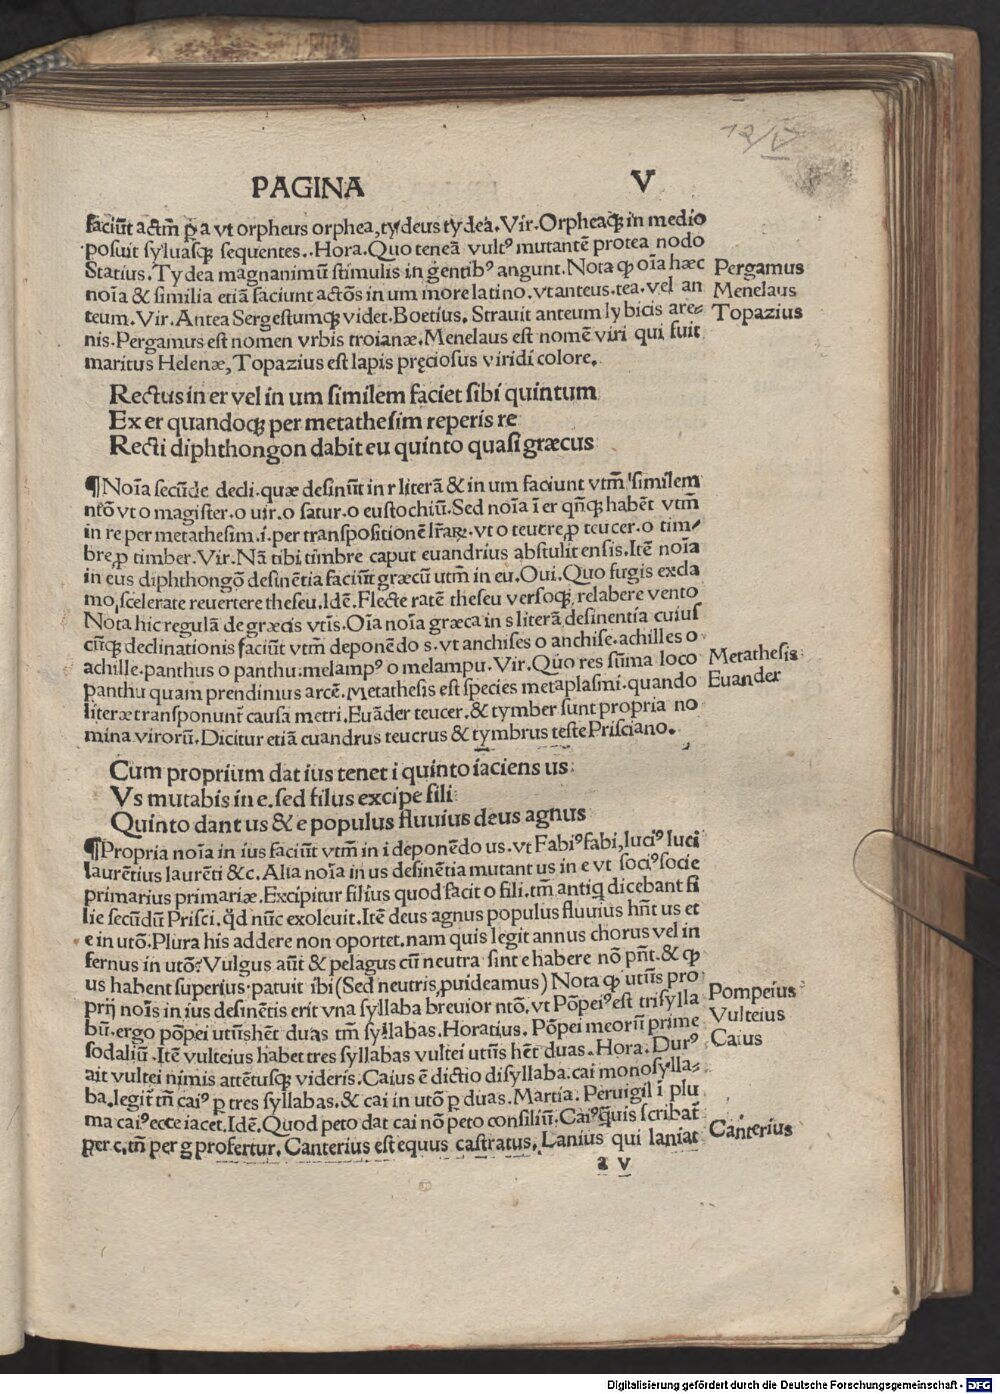 PAGINA V
faciūt actm̄ ꝑ a vt orpheus orphea,tydeus tydea.Vir.Orpheaqꝫ in medio
posuit syluasqꝫ sequentes..Hora.Quo teneā vultꝰ mutantē protea nodo
Statius.Tydea magnanimū stimulis in gentibꝰ angunt.Nota ꝙ oīa hæc
noīa & similia etiā faciunt actōs in um more latino.vt anteus.tea.vel an
teum.Vir.Antea Sergestumqꝫ videt.Boetius.Strauit anteum lybicis are⸗
nis.Pergamus est nomen vrbis troianæ.Menelaus est nomē viri qui fuit
maritus Helenæ,Topazius est lapis pręciosus viridi colore.
Pergamus
Menelaus
Topazius
Rectus in er vel in um similem faciet sibi quintum
Ex er quandoqꝫ per metathesim reperis re
Recti diphthongon dabit eu quinto quasi græcus
¶Noīa secūde decli.quæ desinūt in r literā & in um faciunt vtm̄ similem
ntō vt o magister.o uir.o satur.o eustochiū.Sed noīa ī er qn̄qꝫ habēt vtm̄
in re per metathesim.i.per transpositionē lr̄aꝝ.vt o teucre,ꝓ teucer.o tim⸗
bre,ꝓ timber.Vir.Nā tibi timbre caput euandrius abstulit ensis.Itē noīa
in eus diphthongō desinētia faciūt græcū utm̄ in eu.Oui.Quo fugis excla
mo,scelerate reuertere theseu.Idē.Flecte ratē theseu versoqꝫ relabere vento
Nota hic regulā de græcis vtīs.Oīa noīa græca in s literā desinentia cuius
cūqꝫ declinationis faciūt vtm̄ deponēdo s.vt anchises o anchise.achilles o
achille.panthus o panthu.melampꝰ o melampu.Vir.Quo res sūma loco
panthu quam prendimus arcē.Metathesis est species metaplasmi.quando
literæ transponunt̄ causa metri.Euāder teucer.& tymber sunt propria no
mina virorū.Dicitur etiā euandrus teucrus & tymbrus teste Prisciano.
Metathesis
Euander
Cum proprium dat ius tenet i quinto iaciens us
Vs mutabis in e.sed filus excipe fili
Quinto dant us & e populus fluuius deus agnus
¶Propria noīa in ius faciūt vtm̄ in i deponēdo us.vt Fabiꝰ fabi,luciꝰ luci
laurētius laurēti &c.Alia noīa in us desinētia mutant us in e vt sociꝰ socie
primarius primariæ.Excipitur filius quod facit o fili.tm̄ antiq dicebant fi
lie secūdū Prisci.qd̄ nūc exoleuit.Itē deus agnus populus fluuius hn̄t us et
e in utō.Plura his addere non oportet.nam quis legit annus chorus vel in
fernus in utō?Vulgus aūt & pelagus cū neutra sint e habere nō pn̄t.& ꝙ
us habent superius.patuit ibi (Sed neutris,puideamus) Nota ꝙ utūs pro
prij noīs in ius desinētis erit vna syllaba breuior ntō.vt Pōpeiꝰ est trisylla
bū.ergo pōpei utūs hēt duas tm̄ syllabas.Horatius.Pōpei meorū prime
sodaliū.Itē vulteius habet tres syllabas vultei utūs hēt duas.Hora.Durꝰ
ait vultei nimis attētusqꝫ videris.Caius ē dictio disyllaba.cai monosylla⸗
ba.legit̄ tn̄ caiꝰ ꝑ tres syllabas.& cai in utō ꝑ duas.Martia.Peruigil ī plu
ma caiꝰ ecce iacet.Idē.Quod peto dat cai nō peto consiliū.Caiꝰ quis scribat̄
per c,tn̄ per g profertur.Canterius est equus castratus.Lanius qui laniat
Pompeius
Vulteius
Caius
Canterius
a v
Digitalisierung gefördert durch die Deutsche Forschungsgemeinschaft - DFG